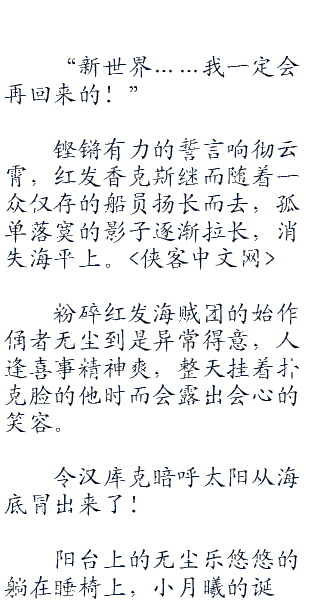 “新世界……我一定会
再回来的！”
铿锵有力的誓言响彻云
霄，红发香克斯继而随着一
众仅存的船员扬长而去，孤
单落寞的影子逐渐拉长，消
失海平上。<侠客中文网>
粉碎红发海贼团的始作
俑者无尘到是异常得意，人
逢喜事精神爽，整天挂着扑
克脸的他时而会露出会心的
笑容。
令汉库克暗呼太阳从海
底冒出来了！
阳台上的无尘乐悠悠的
躺在睡椅上，小月曦的诞